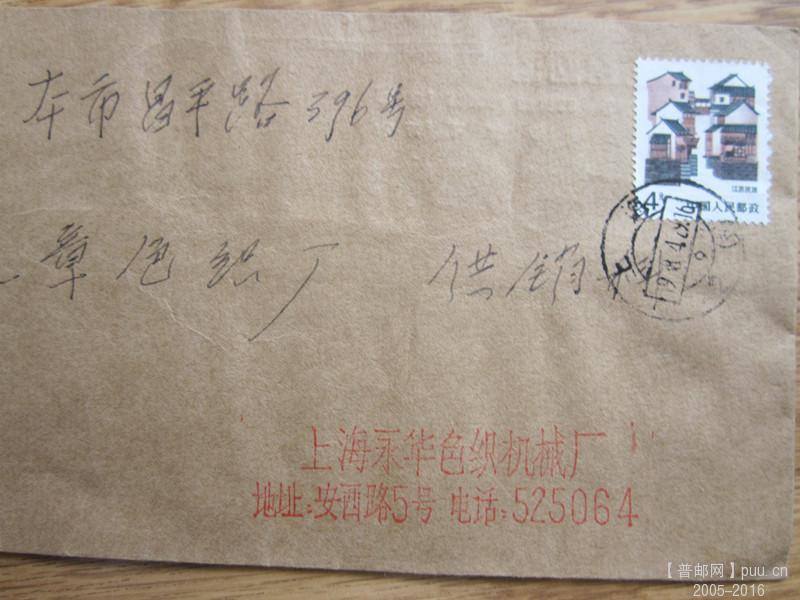 本市昌平路396号
江苏民居
中国人民邮政
章色织厂 供销科
上海永华色织机械厂
地址:安西路5号 电话:525064
【普邮网】puu.cn
2005-2016